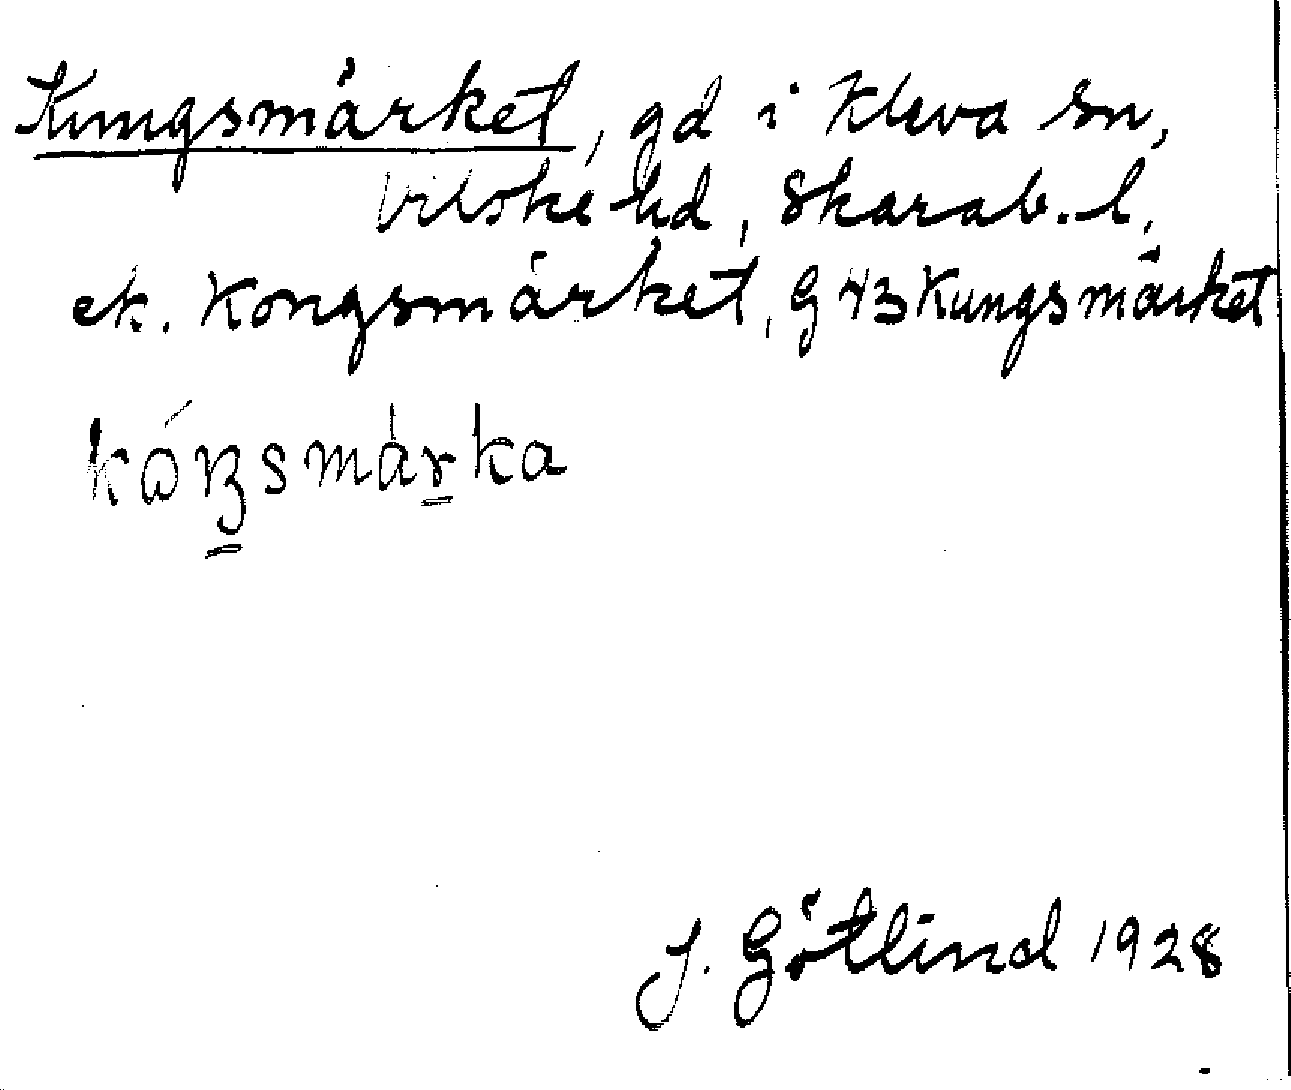 Kungsmärket, gd i Kleva sn,
Vilske hd, Skarab. l,
ek. Kongsmärket, G 43 Kungsmärket
J. Götlind 1928